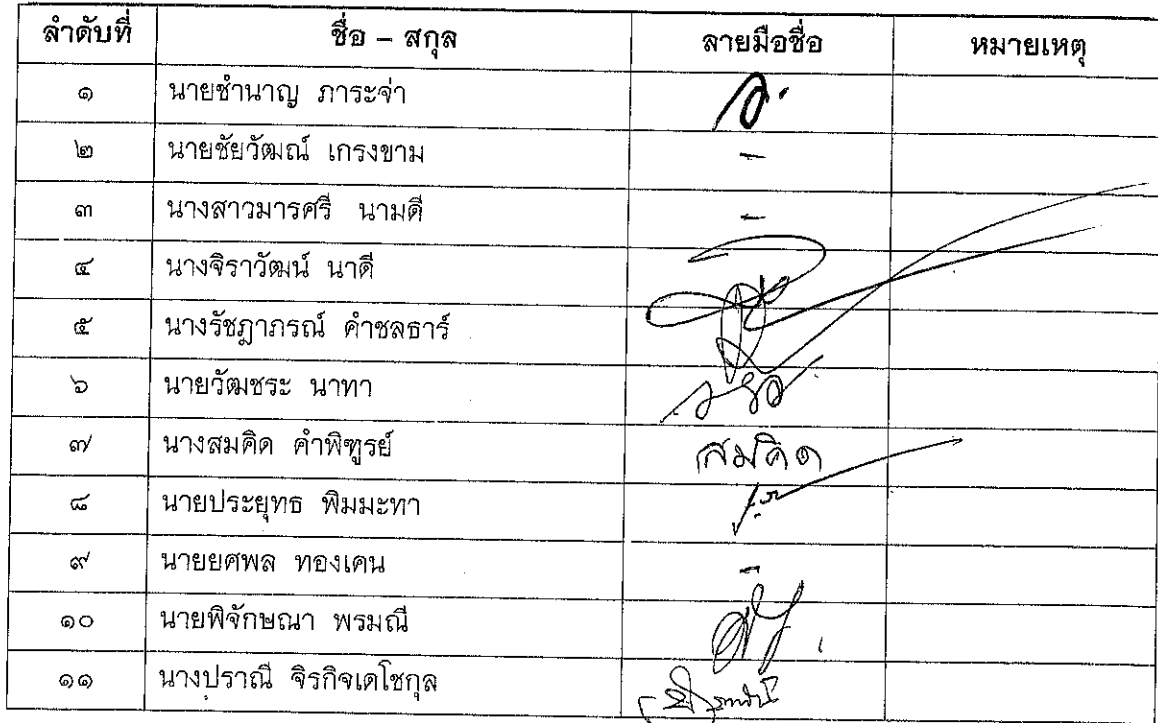 ลำดับที่ ชื่อ – สกุล ลายมือชื่อ หมายเหตุ
๑ นายชำนาญ ภาระจ่า
๒ นายชัยวัฒณ์ เกรงขาม -
๓ นางสาวมารศรี นามดี -
๔ นางจิราวัฒน์ นาดี
๕ นางรัชฎาภรณ์ คำชลธาร์
๖ นายวัฒชระ นาทา
๗ นางสมคิด คำพิฑูรย์ สมคิด
๘ นายประยุทธ พิมมะทา
๙ นายยศพล ทองเคน -
๑๐ นายพิจักษณา พรมณี
๑๑ นางปราณี จิรกิจเดโชกุล